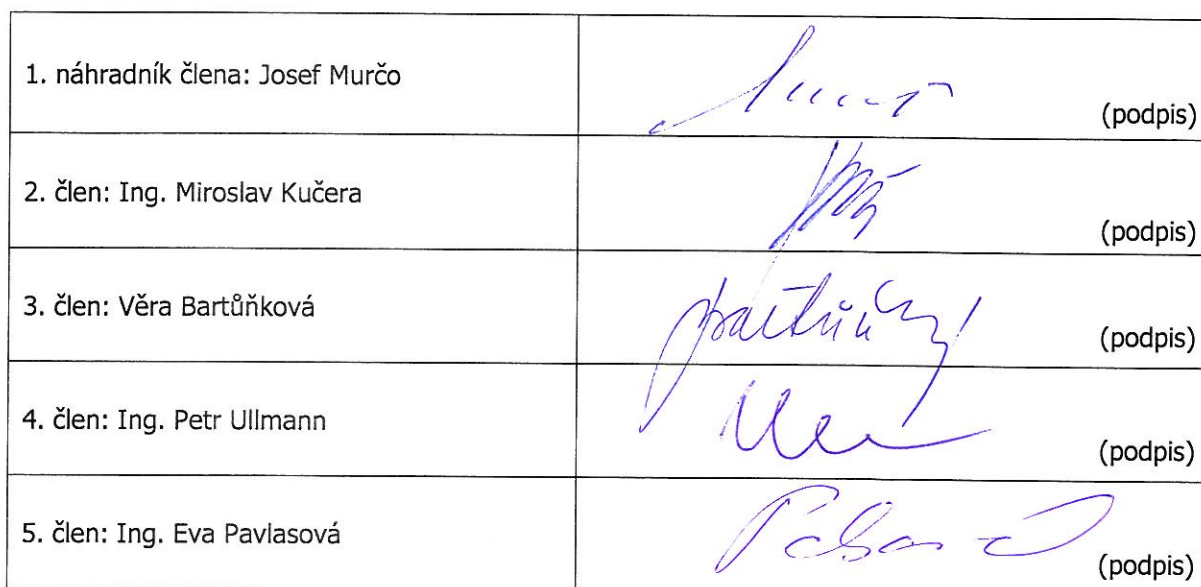 1. náhradník člena: Josef Murčo
(podpis)
2. člen: Ing. Miroslav Kučera
(podpis)
3. člen: Věra Bartůňková
(podpis)
4. člen: Ing. Petr Ullmann
(podpis)
5. člen: Ing. Eva Pavlasová
(podpis)